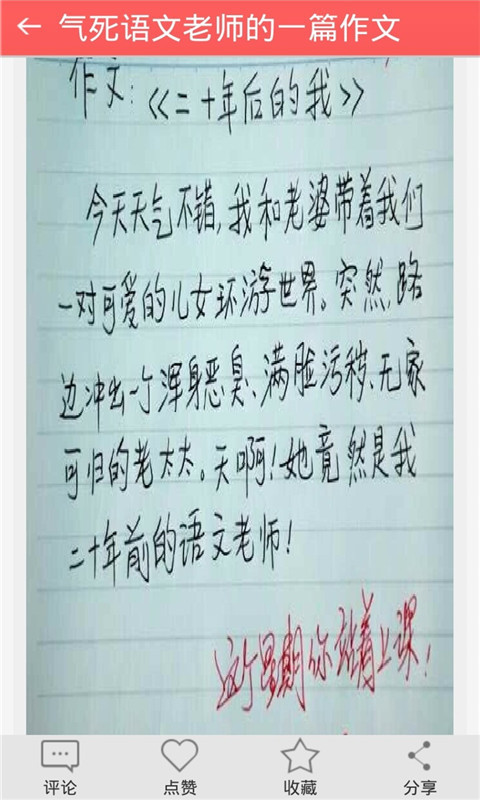 气死语文老师的一篇作文
作文:《二十年后的我》
今天天气不错,我和老婆带着我们
一对可爱的儿女环游世界。突然,路
边冲出一个浑身恶臭、满脸污秽、无家
可归的老太太。天啊!她竟然是我
二十年前的语文老师!
这个星期你站着上课!
评论
点赞
收藏
分享